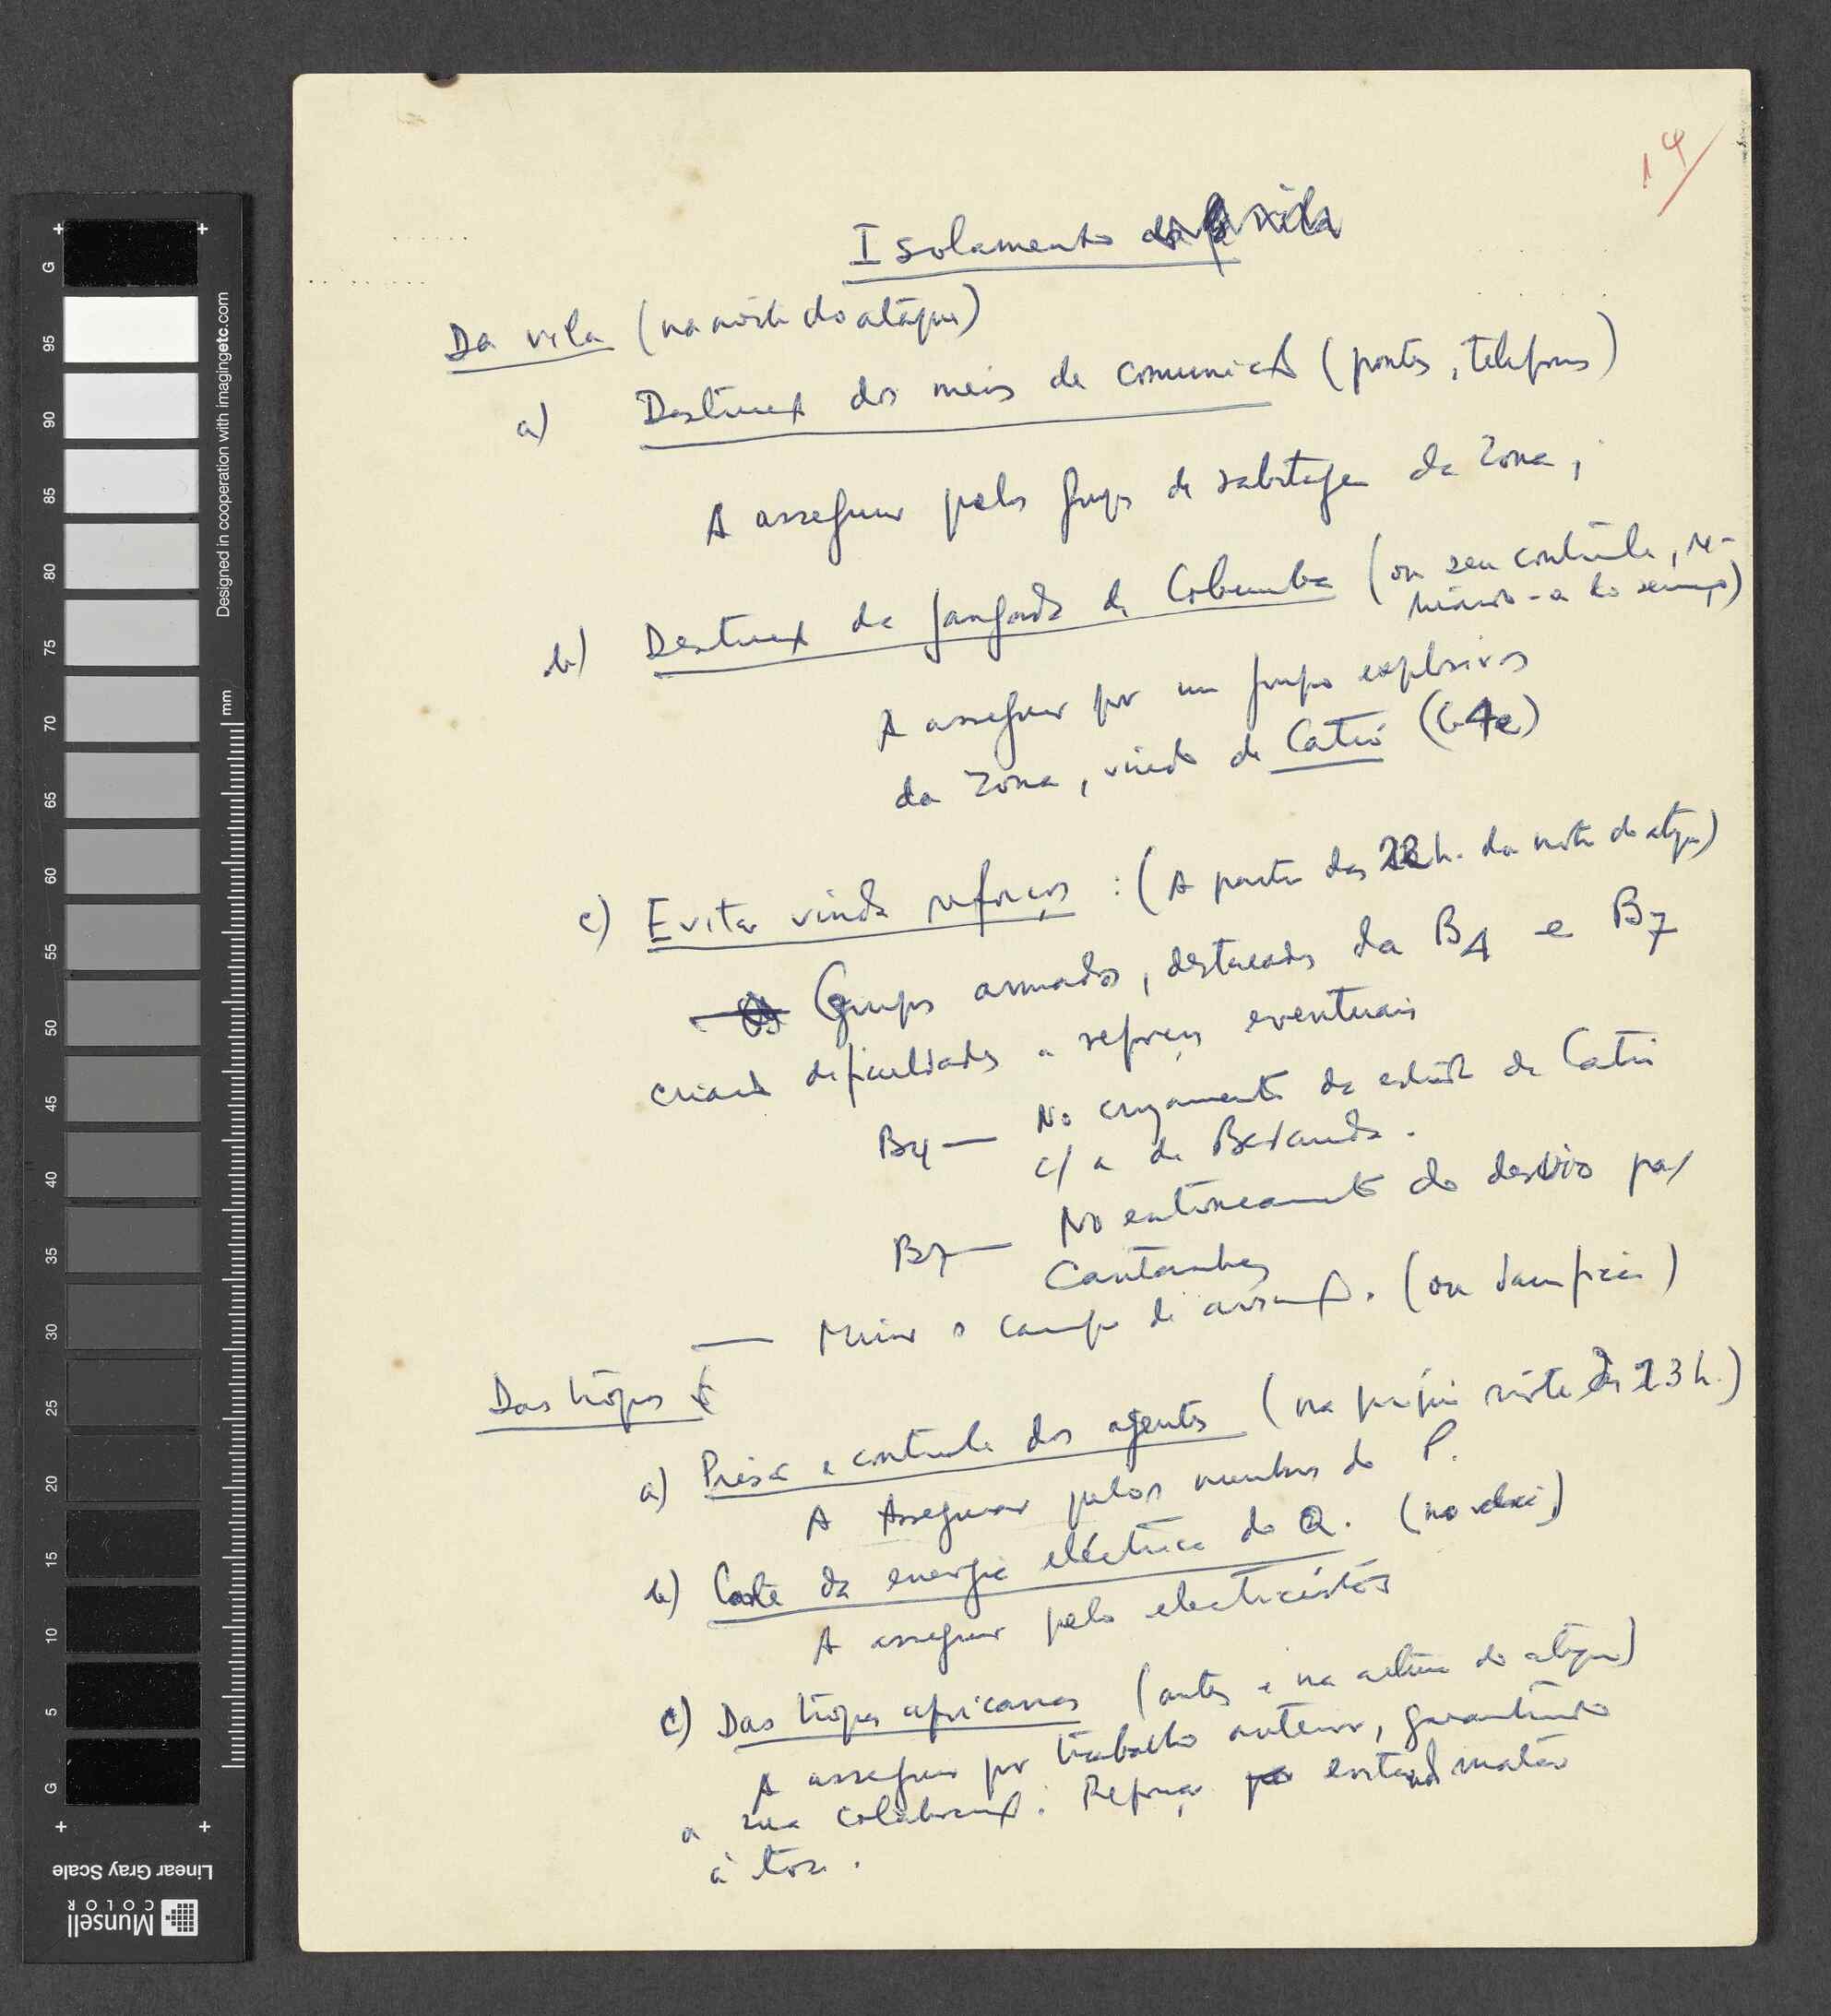 14
Isolamento da vila
Da vila (na noite do ataque)
a) Destruiç dos meios de comunicaç (pontes, telefones)
A assegurar pelos grupos de sabotagem da Zona,
b) Destruiç da jangada de Cobumba (ou seu contrôle, re-
tirando-a do serviço)
A assegurar por um grupo explosivos
da Zona, vindo de Catió
c) Evitar vinda reforços : (A partir das 22 h. da noite do ataque)
Grupos armados, destacados da B4 e B7
criand dificuldades a reforços eventuais
B4 — No cruzamento da estrada de Catió
c/ a de Bedanda.
B7 — No entroncamento do desvio pa/
Cantanhez
— Minar o campo de aviaç. (ou danificar)
Das tropas
a) Prisão e contrôle dos agentes (na própria noite às 23 h.)
A Assegurar pelos membros do P.
b) Corte da energia eléctrica do Q.
A assegurar pelo electricista
c) Das tropas africanas (antes e na altura do ataque)
A assegurar por trabalho anterior, garantindo
a sua colaboraç. Reforçar evitand matar
à toa.
Linear Gray Scale
Munsell
COLOR
Designed in cooperation with imagingetc.com
mm
G
95
90
85
80
75
70
65
60
55
50
45
40
35
30
25
20
15
10
5
G